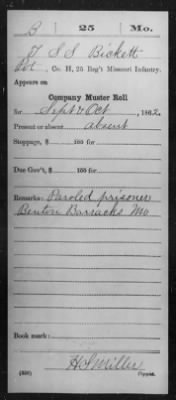 B 25 Mo.
T. S. S. Bickett
Pvt., Co. H, 25 Reg't Missouri Infantry.
Appears on
Company Muster Roll
for Sept & Oct, 1862.
Present or absent absent
Stoppage, $ 100 for
Due Gov't, $ 100 for
Remarks: Paroled prisoner
Benton Barracks Mo
Book mark:
H S Miller
(858) Copyist.